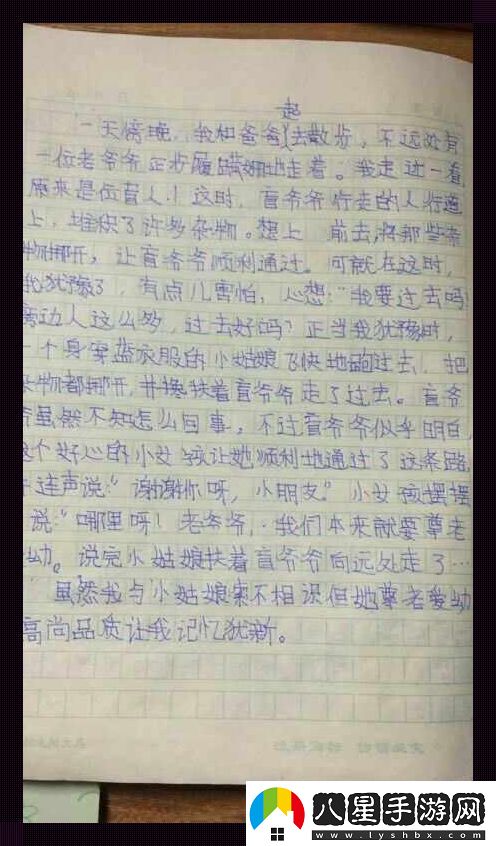 起
一天傍晚，我和爸爸去散步，不远处有
一位老爷爷正步履蹒跚地走着。我走进一看，
原来是位盲人！这时，盲爷爷行走的人行道
上，堆积了许多杂物。想上 前去，将那些杂
物挪开，让盲爷爷顺利通过。可就在这时，
我犹豫了，有点儿害怕，心想："我要过去吗？
旁边人这么多，过去好吗？正当我犹豫时，
一个身穿蓝衣服的小姑娘飞快地跑过去，把
杂物都挪开，并搀扶着盲爷爷走了过去。盲爷
爷虽然不知怎么回事，不过盲爷爷似乎明白，
这个好心的小女孩让她顺利地通过了这条路，
连声说："谢谢你呀，小朋友。"小女孩摆摆
说："哪里呀！老爷爷，我们本来就要尊老
幼。说完小姑娘扶着盲爷爷向远处走了…
虽然我与小姑娘素不相识但她尊老爱幼
高尚品质让我记忆犹新。
八星手游网
www.lyshbx.com